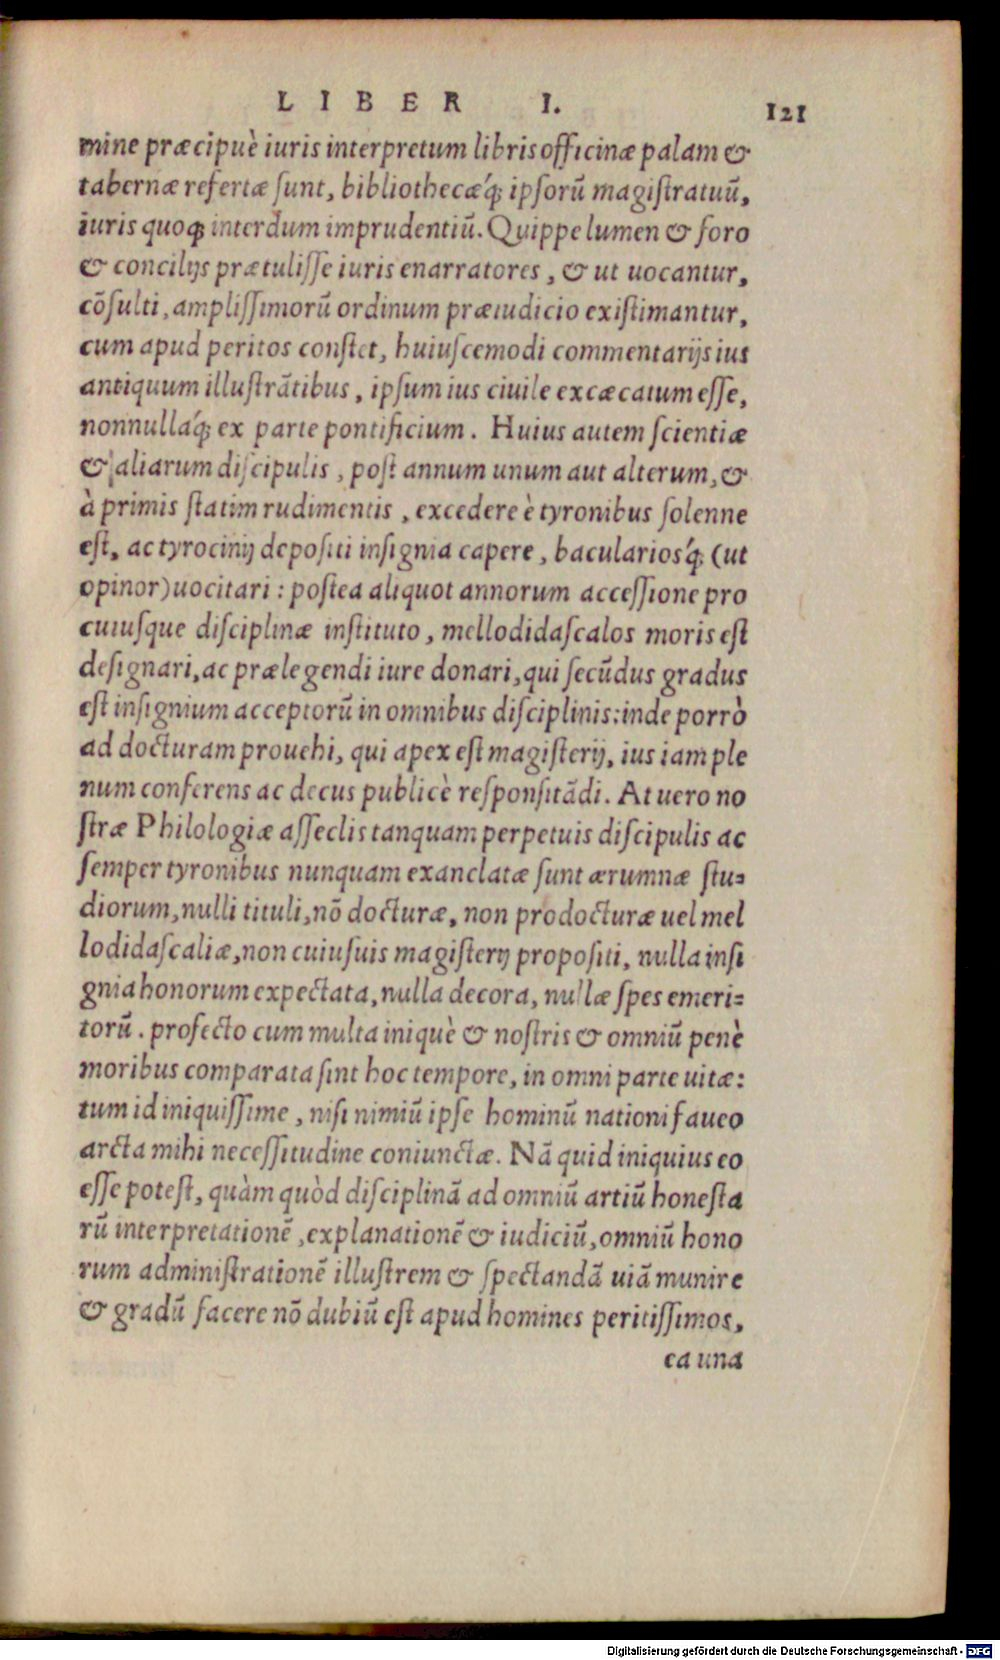 LIBER I. 121
mine præcipuè iuris interpretum libris officinæ palam &
tabernæ refertæ ſunt, bibliothecæq́; ipſorū magiſtratuū,
iuris quoq; interdum imprudentiū. Quippe lumen & foro
& concilijs prætuliſſe iuris enarratores, & ut uocantur,
cōſulti, ampliſſimorū ordinum præiudicio exiſtimantur,
cum apud peritos conſtet, huiuſcemodi commentarijs ius
antiquum illuſtrātibus, ipſum ius ciuile excæcatum eſſe,
nonnullaq́; ex parte pontificium. Huius autem ſcientiæ
& aliarum diſcipulis, poſt annum unum aut alterum, &
à primis ſtatim rudimentis, excedere è tyronibus ſolenne
eſt, ac tyrocinij depoſiti inſignia capere, bacularioſq́; (ut
opinor) uocitari: poſtea aliquot annorum acceſſione pro
cuiuſque diſciplinæ inſtituto, mellodidaſcalos moris eſt
deſignari, ac prælegendi iure donari, qui ſecūdus gradus
eſt inſignium acceptorū in omnibus diſciplinis: inde porrò
ad docturam prouehi, qui apex eſt magiſterij, ius iam ple
num conferens ac decus publicè reſponſitādi. At uero no
ſtræ Philologiæ aſſeclis tanquam perpetuis diſcipulis ac
ſemper tyronibus nunquam exanclatæ ſunt ærumnæ ſtu-
diorum, nulli tituli, nō docturæ, non prodocturæ uel mel
lodidaſcaliæ, non cuiuſuis magiſterij propoſiti, nulla inſi
gnia honorum expectata, nulla decora, nullæ ſpes emeri-
torū. profecto cum multa iniquè & noſtris & omniū penè
moribus comparata ſint hoc tempore, in omni parte uitæ:
tum id iniquiſſime, niſi nimiū ipſe hominū nationi faueo
arcta mihi neceſſitudine coniunctæ. Nā quid iniquius eo
eſſe poteſt, quàm quòd diſciplinā ad omniū artiū honeſta
rū interpretationē, explanationē & iudiciū, omniū hono
rum adminiſtrationē illuſtrem & ſpectandā uiā munire
& gradū facere nō dubiū eſt apud homines peritiſſimos,
ea una
Digitalisierung gefördert durch die Deutsche Forschungsgemeinschaft - DFG